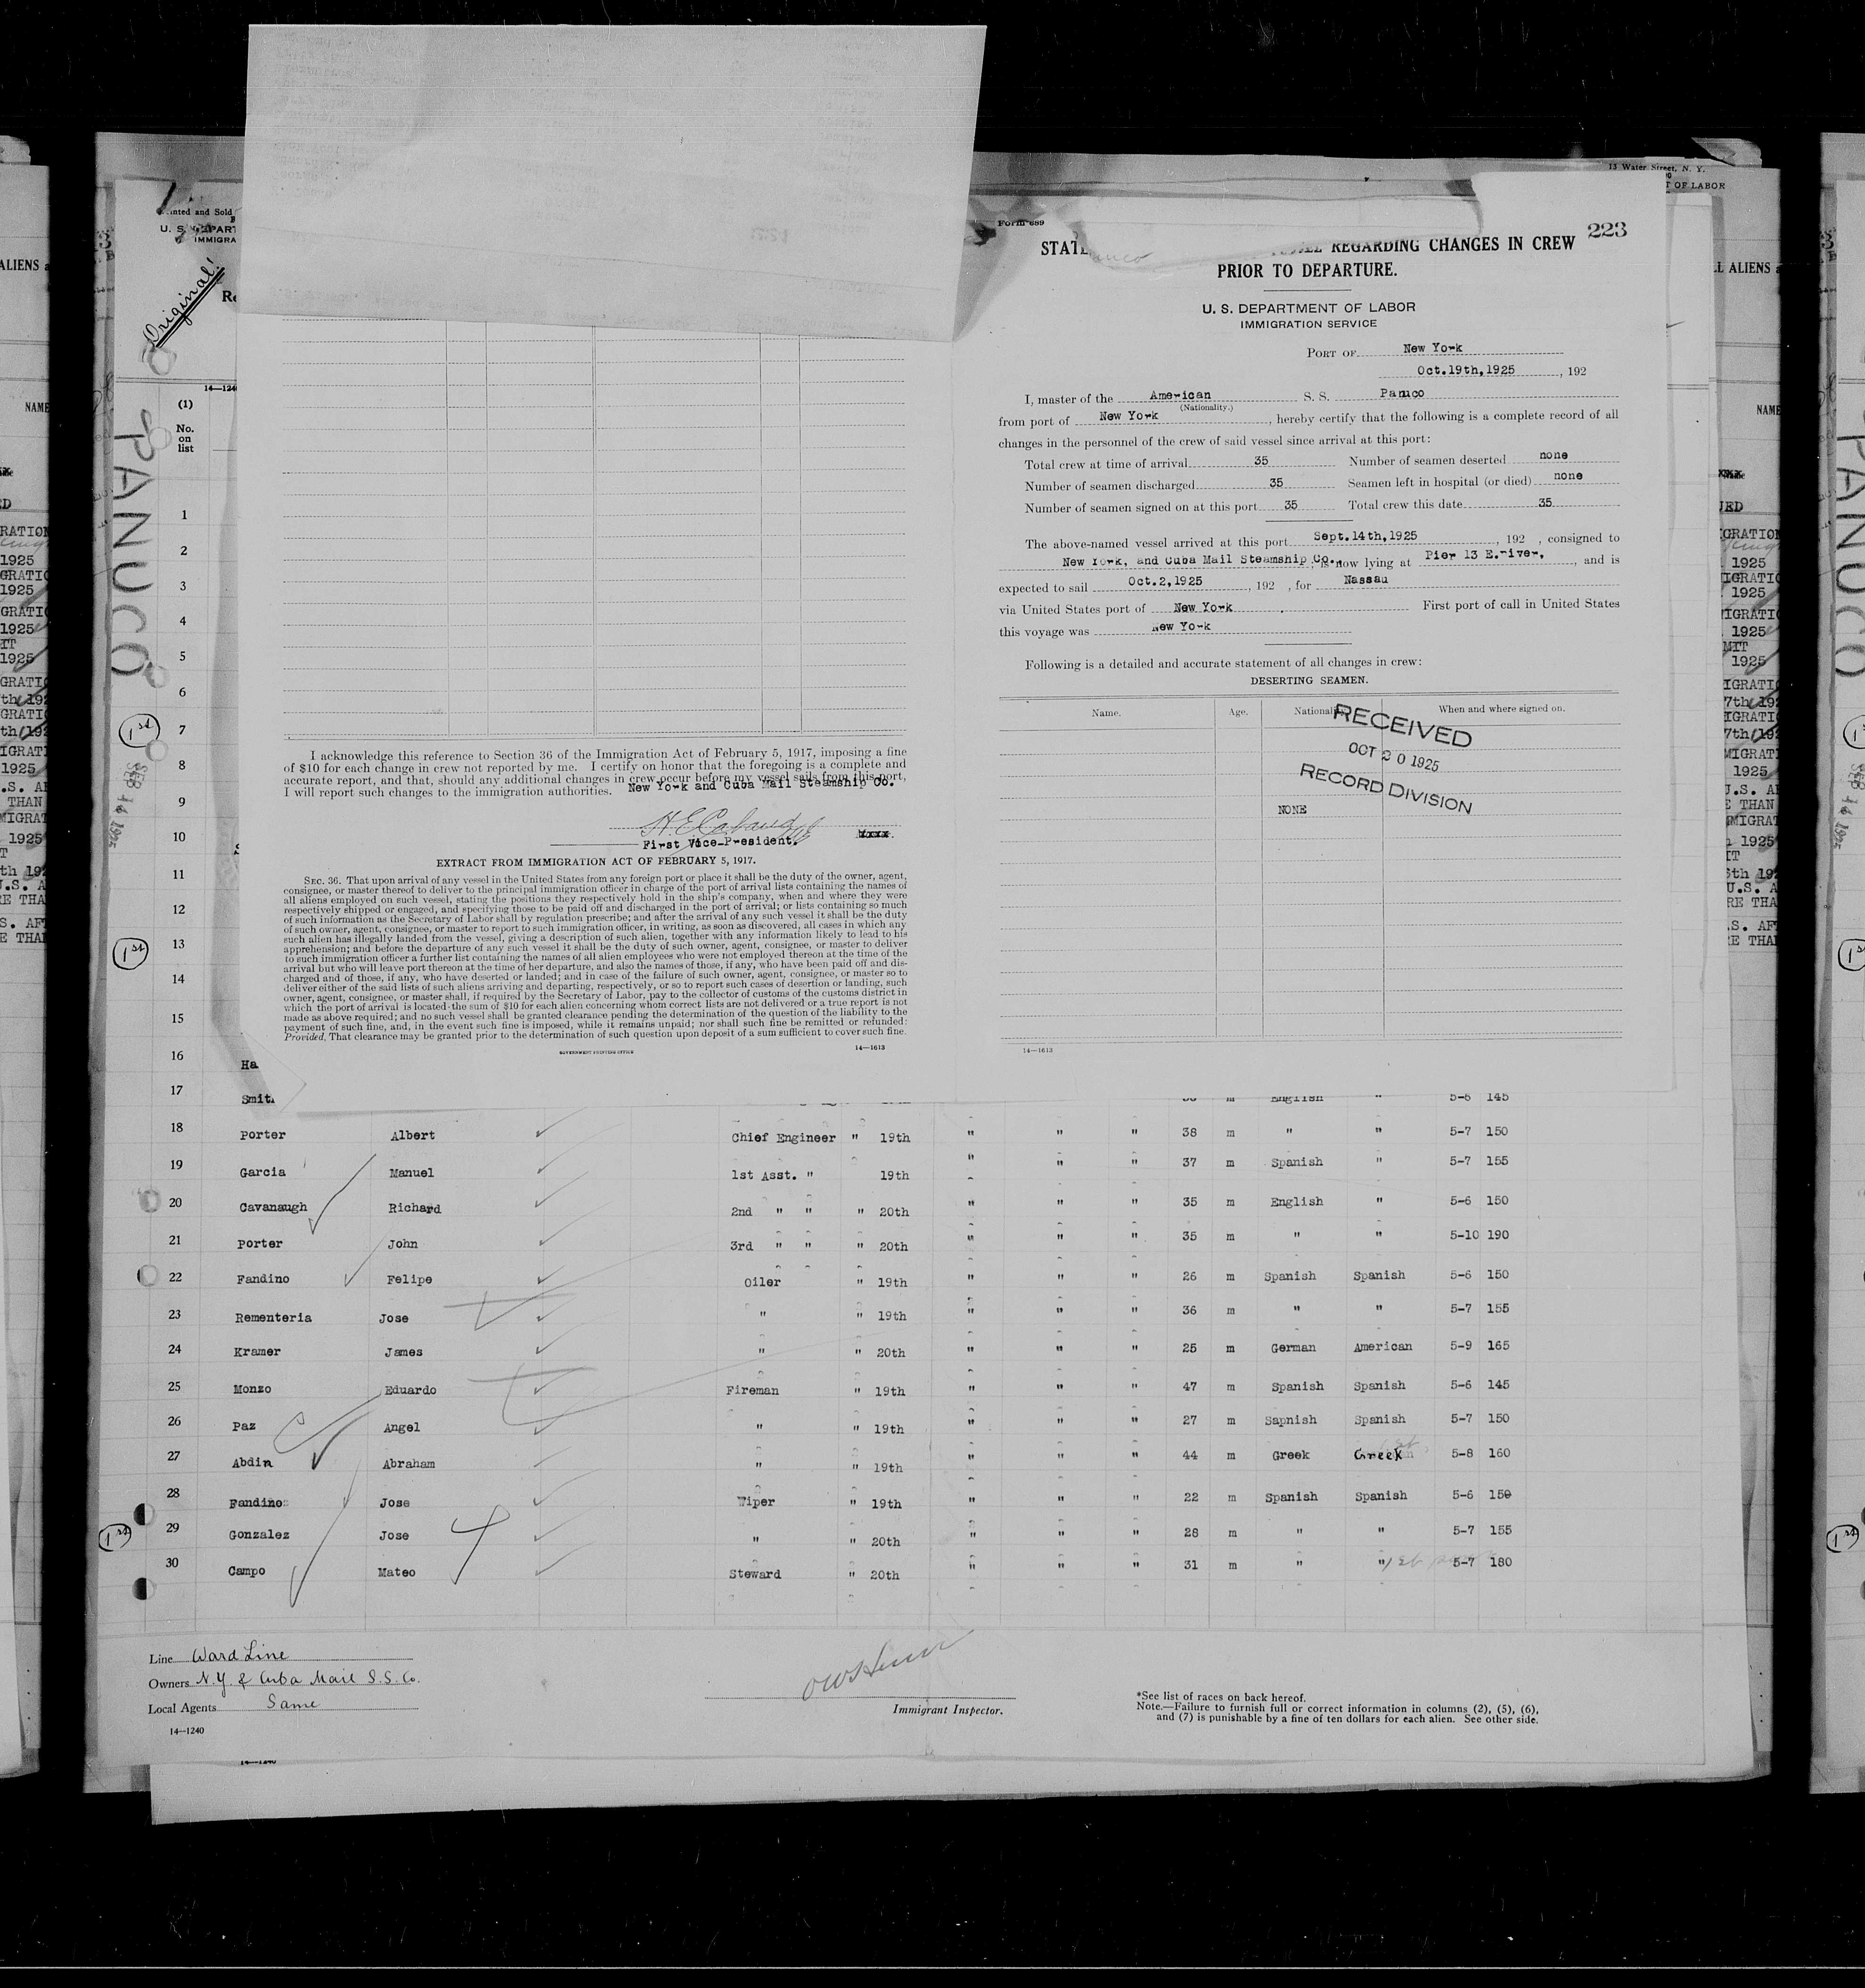 13 Water Street, N. Y.
T OF LABOR
inted and Sold
U. S. DEPART
IMMIGRA
Original!
Re
14—1240
(1)
No.
on
list
PANUCO
1
2
3
4
5
6
7
1st
8
SEP 14 1925
9
10
11
12
13
1st
14
15
16
17
I acknowledge this reference to Section 36 of the Immigration Act of February 5, 1917, imposing a fine
of $10 for each change in crew not reported by me. I certify on honor that the foregoing is a complete and
accurate report, and that, should any additional changes in crew occur before my vessel sails from this port,
I will report such changes to the immigration authorities. New York and Cuba Mail Steamship Co.
H.E.Cabaud
First Vice-President.
EXTRACT FROM IMMIGRATION ACT OF FEBRUARY 5, 1917.
SEC. 36. That upon arrival of any vessel in the United States from any foreign port or place it shall be the duty of the owner, agent,
consignee, or master thereof to deliver to the principal immigration officer in charge of the port of arrival lists containing the names of
all aliens employed on such vessel, stating the positions they respectively hold in the ship's company, when and where they were
respectively shipped or engaged, and specifying those to be paid off and discharged in the port of arrival; or lists containing so much
of such information as the Secretary of Labor shall by regulation prescribe; and after the arrival of any such vessel it shall be the duty
of such owner, agent, consignee, or master to report to such immigration officer, in writing, as soon as discovered, all cases in which any
such alien has illegally landed from the vessel, giving a description of such alien, together with any information likely to lead to his
apprehension; and before the departure of any such vessel it shall be the duty of such owner, agent, consignee, or master to deliver
to such immigration officer a further list containing the names of all alien employees who were not employed thereon at the time of the
arrival but who will leave port thereon at the time of her departure, and also the names of those, if any, who have been paid off and dis-
charged and of those, if any, who have deserted or landed; and in case of the failure of such owner, agent, consignee, or master so to
deliver either of the said lists of such aliens arriving and departing, respectively, or so to report such cases of desertion or landing, such
owner, agent, consignee, or master shall, if required by the Secretary of Labor, pay to the collector of customs of the customs district in
which the port of arrival is located the sum of $10 for each alien concerning whom correct lists are not delivered or a true report is not
made as above required; and no such vessel shall be granted clearance pending the determination of the question of the liability to the
payment of such fine, and, in the event such fine is imposed, while it remains unpaid; nor shall such fine be remitted or refunded:
Provided, That clearance may be granted prior to the determination of such question upon deposit of a sum sufficient to cover such fine.
GOVERNMENT PRINTING OFFICE 14—1613
Form 689
223
STATE REGARDING CHANGES IN CREW
PRIOR TO DEPARTURE.
U. S. DEPARTMENT OF LABOR
IMMIGRATION SERVICE
PORT OF New York
Oct.19th,1925 , 192
I, master of the American S. S. Panuco
(Nationality.)
from port of New York , hereby certify that the following is a complete record of all
changes in the personnel of the crew of said vessel since arrival at this port:
Total crew at time of arrival 35 Number of seamen deserted none
Number of seamen discharged 35 Seamen left in hospital (or died) none
Number of seamen signed on at this port 35 Total crew this date 35
The above-named vessel arrived at this port Sept.14th,1925 , 192 , consigned to
New York, and Cuba Mail Steamship Co. is now lying at Pier 13 E.river, , and is
expected to sail Oct.2,1925 , 192 , for Nassau
via United States port of New York . First port of call in United States
this voyage was New York
Following is a detailed and accurate statement of all changes in crew:
DESERTING SEAMEN.
Name. Age. Nationality When and where signed on.
RECEIVED
OCT 20 1925
RECORD DIVISION
NONE
14—1613
Ha
Smit English " 5-6 145
18 Porter Albert Chief Engineer " 19th " " " 38 m " " 5-7 150
19 Garcia Manuel 1st Asst. " 19th " " " 37 m Spanish " 5-7 155
20 Cavanaugh Richard 2nd " " " 20th " " " 35 m English " 5-6 150
21 Porter John 3rd " " " 20th " " " 35 m " " 5-10 190
22 Fandino Felipe Oiler " 19th " " " 26 m Spanish Spanish 5-6 150
23 Rementeria Jose " " 19th " " " 36 m " " 5-7 155
24 Kramer James " " 20th " " " 25 m German American 5-9 165
25 Monzo Eduardo Fireman " 19th " " " 47 m Spanish Spanish 5-6 145
26 Paz Angel " " 19th " " " 27 m Sapnish Spanish 5-7 150
27 Abdin Abraham " " 19th " " " 44 m Greek Greek 5-8 160
28 Fandino Jose Wiper " 19th " " " 22 m Spanish Spanish 5-6 150
29 Gonzalez Jose " " 20th " " " 28 m " " 5-7 155
1st
30 Campo Mateo Steward " 20th " " " 31 m " " 5-7 180
Line Ward Line
Owners N.Y. & Cuba Mail S.S. Co.
Local Agents Same
14—1240
Immigrant Inspector.
*See list of races on back hereof.
Note.—Failure to furnish full or correct information in columns (2), (5), (6),
and (7) is punishable by a fine of ten dollars for each alien. See other side.
14—1240